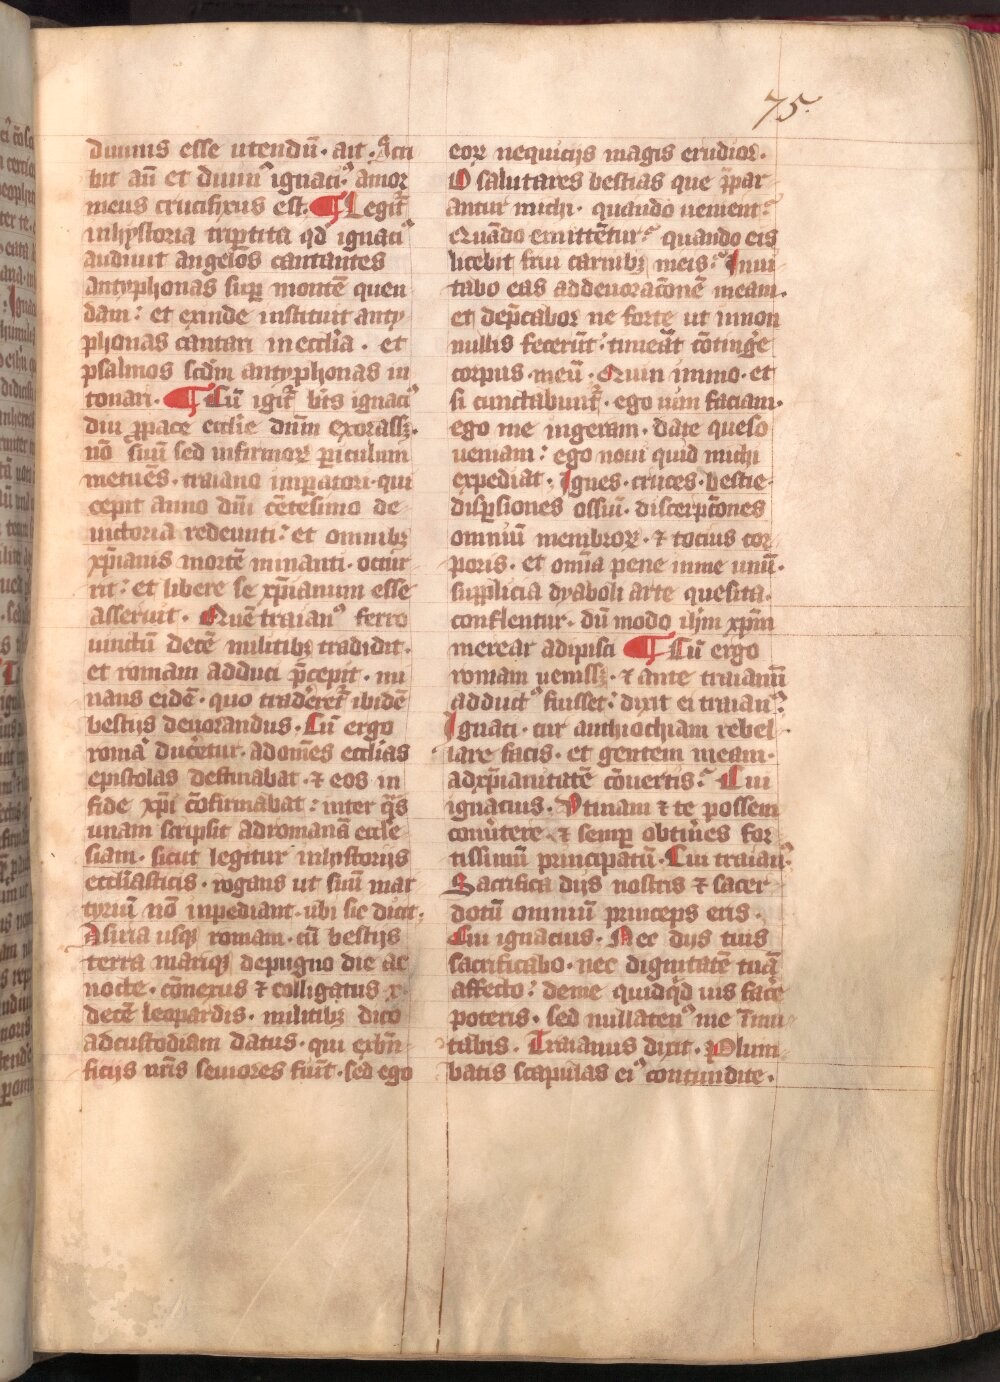 75.
diuinis esse utendū · ait · Scri
bit aū et diuin⁹ ignaci⁹ · amor
meus crucifixus est. ¶ Legit᷑
inhystoria tripertita qd ignaci⁹
audiuit angelos cantantes
antyphonas suꝑ montē quen
dam : et exinde instituit anty
phonas cantari in ecclīa . et
psalmos scdm̄ antyphonas in
tonari . ¶ Cū igit᷑ bt̄s ignaci⁹
diu ꝓpace ecclīe dn̄m exorassꝫ .
nō suū sed infirmoꝝ ꝑiculum
metuēs · traiano imꝑatori · qui
cepit anno dn̄i cētesimo de
uictoria redeunti : et omnibꝫ
xp̄ianis mortē minanti · occur
rit : et libere se xp̄ianum esse
asseruit . Quē traian⁹ ferro
uinctū decē militibꝫ tradidit .
et romam adduci p̄cepit . mi
nans eidē · quo traderet᷑ ibidē
bestijs deuorandus · Cū ergo
romā ducetur · adom̄es ecclīas
epistolas destinabat · ⁊ eos in
fide xp̄i cōfirmabat : inter q̄s
unam scripsit adromanā eccle
siam · sicut legitur inhystorijs
ecclīasticis · rogans ut suū mar
tyriū nō inpediant · ubi sic dicit :
Asiria usqꝫ romam · cū bestijs
terra mariqꝫ depugno die ac
nocte · cōnexus ⁊ colligatus x ·
decē leopardis · militibꝫ dico
adcustodiam datus · qui exbn̄
ficijs nr̄is seuiores fiūt · sed ego
eoꝝ nequicijs magis erudior .
O salutares bestias que p̄par
antur michi · quando uenient :
Quādo emittētur : quando eis
licebit frui carnibꝫ meis : Inui
tabo eas addeuoracōnē meam .
et dep̄cabor ne forte ut innon
nullis fecerūt : timeāt cōtinge
corpus meū · Quin immo · et
si cunctabunt᷑ · ego uim faciam ·
ego me ingeram · date queso
ueniam : ego noui quid michi
expediat . Ignes · cruces · bestie
disꝑsiones ossiū · discerptōnes
omniū membroꝝ · ⁊ tocius cor
poris · et om̄ia pene inme unū ·
supplicia dyaboli arte quesita .
conflentur · dū modo ih̄m xp̄m
merear adipisci ¶ Cū ergo
romam uenissꝫ · ⁊ ante traianū
adduct⁹ fuisset : dixit ei traian⁹
Ignati · cur anthiochiam rebel
lare facis · et gentem meam ·
adxp̄ianitatē cōuertis : Cui
ignatius · Vtinam ⁊ te possem
conutere · ⁊ semꝑ obtin̄es for
tissimū principatū · Cui traian⁹ ·
Sacrifica dijs nostris ⁊ sacer
dotū omniū princeps eris .
Cui ignacius · Nec dijs tuis
sacrificabo · nec dignitatē tuā
affecto : de me quidq̄d uis facē
poteris · sed nullaten⁹ me īmu
tabis . Traianus dixit · Plum
batis scapulas ei⁹ contundite .